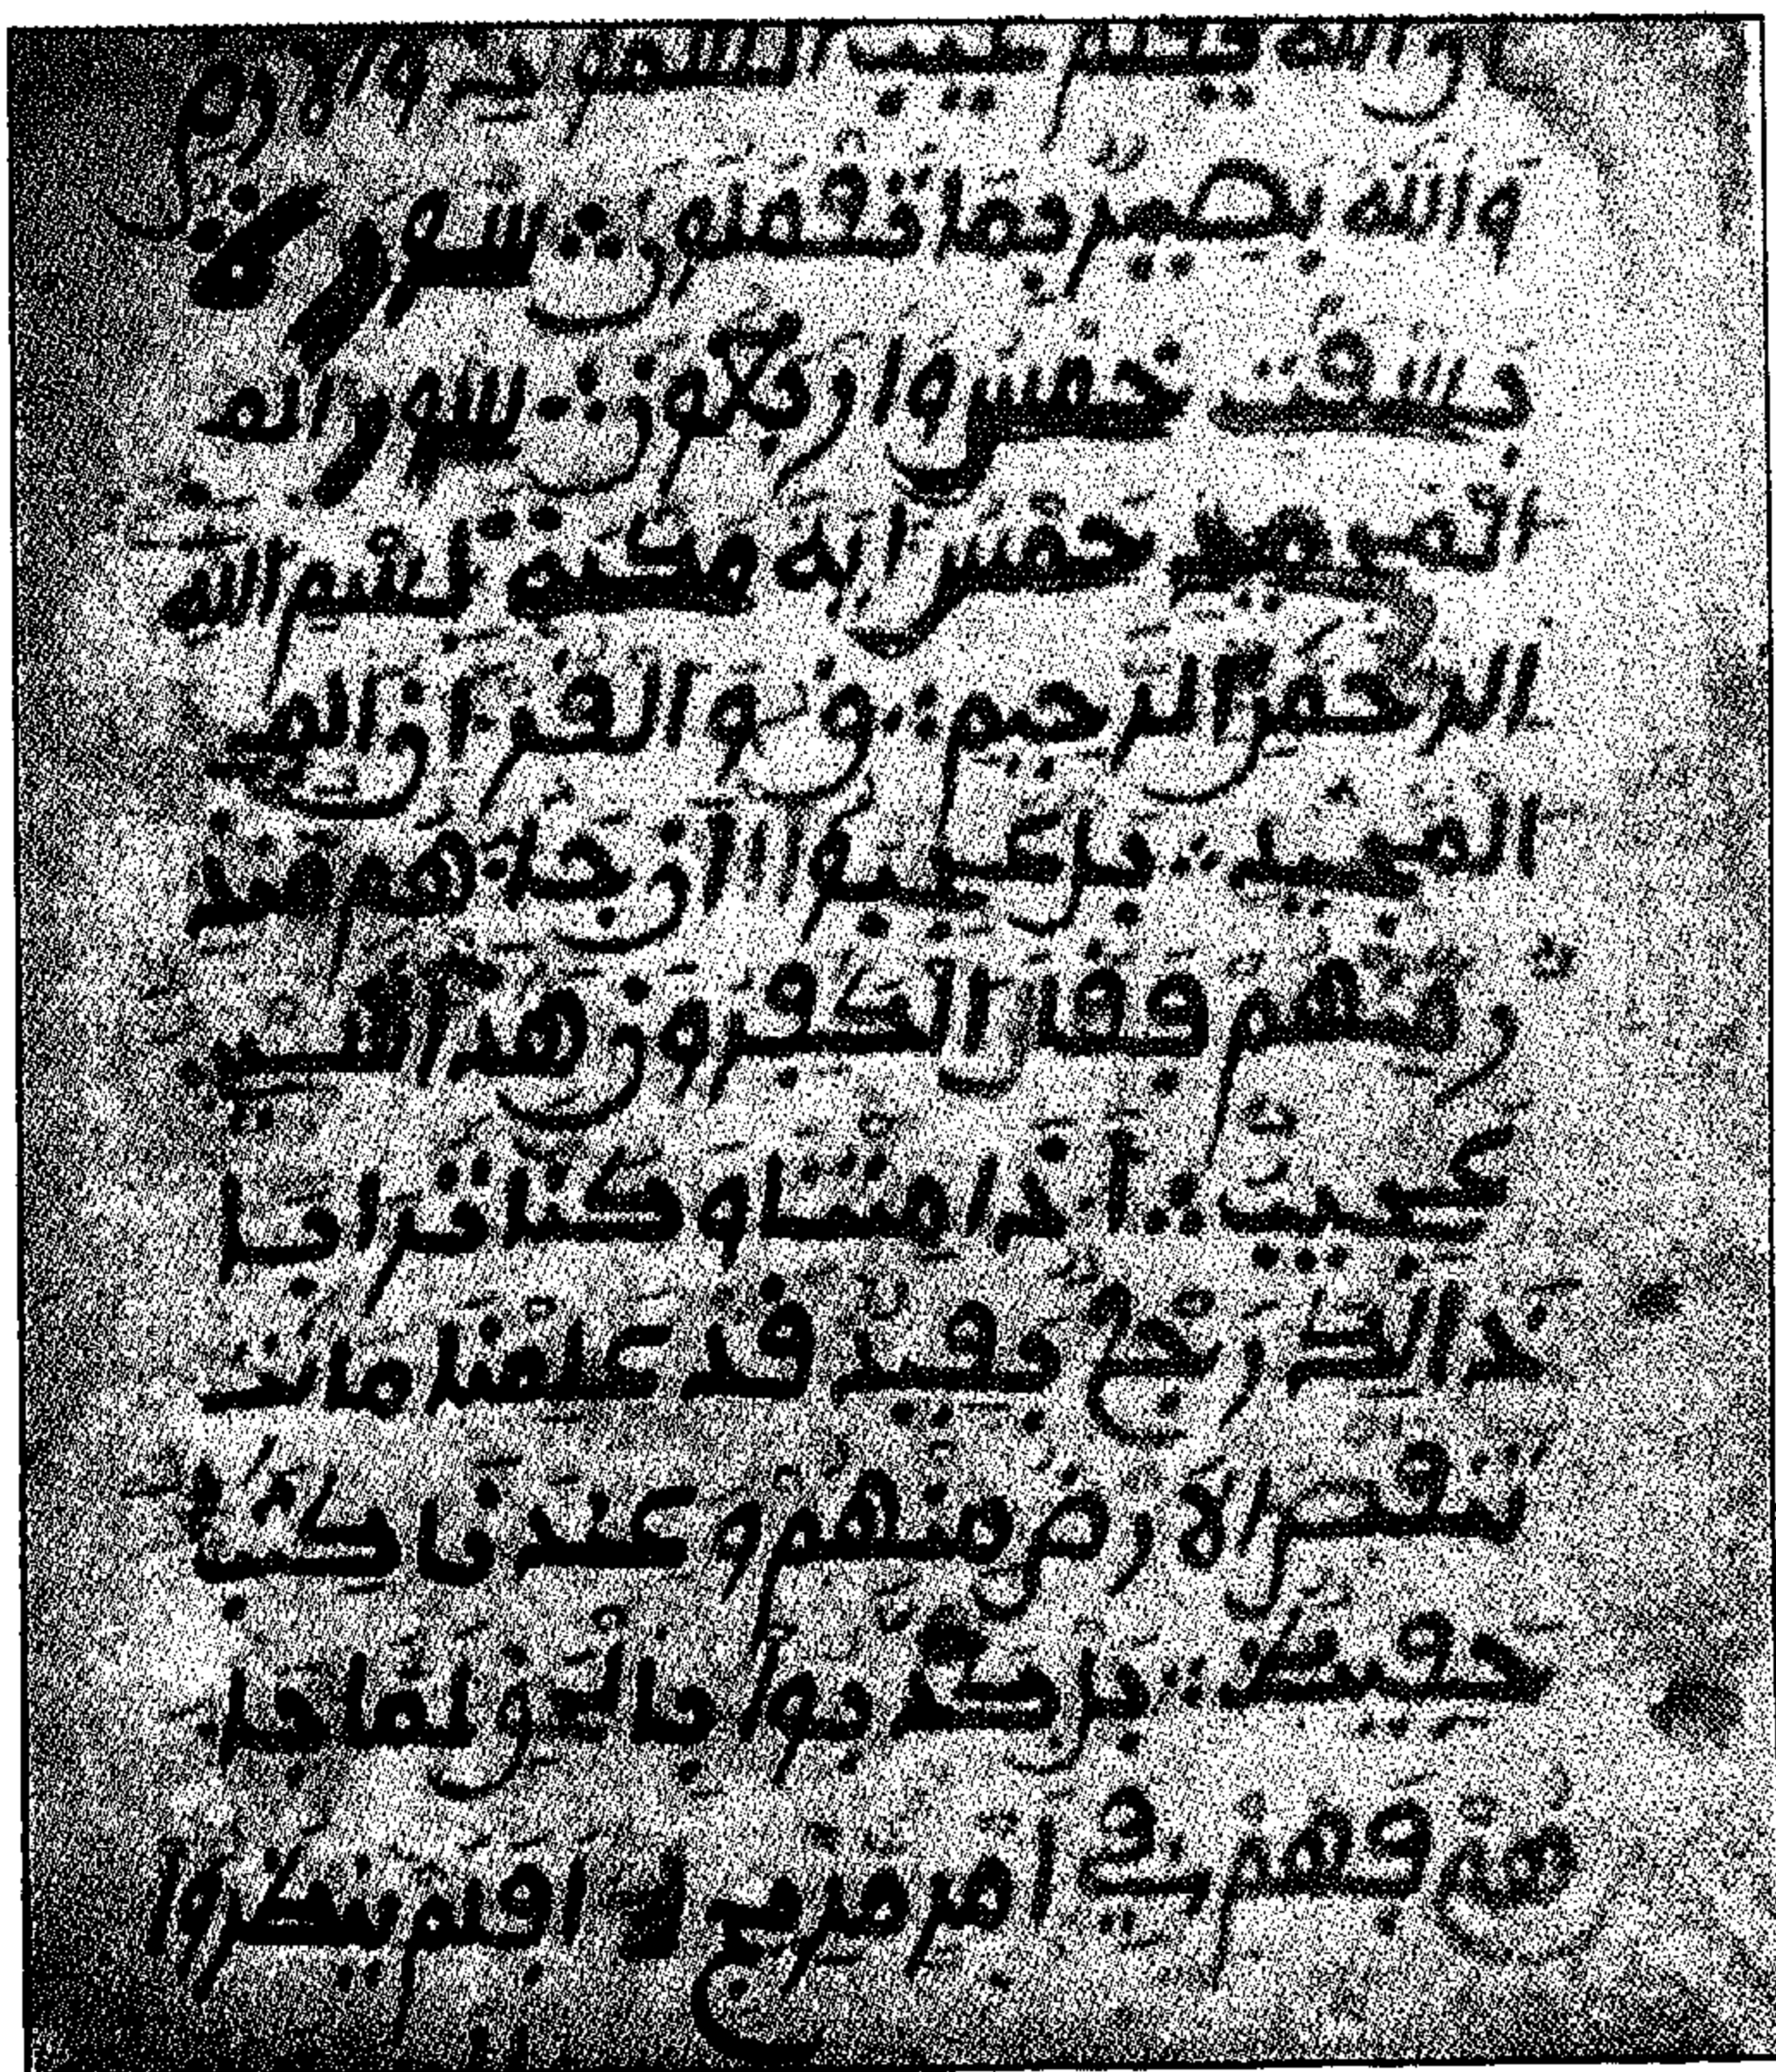 ان الله يعلم غيب السموت والارض
والله بصير بما تعملون سورة
بسقت خمس واربعون سور الم
خمس اية مكية بسم الله
الرحمن الرحيم ق والقران الم
المجيد بل عجبوا ان جاهم منذ
ر منهم فقال الكفرون هذا شي
عجيب اذا متنا وكنا ترابا
ذالك رجع بعيد قد علمنا مات
تنقص الارض منهم وعندنا كتب
حفيظ بل كذبوا بالحق لما جا
هم فهم في امر مريج افلم ينظروا